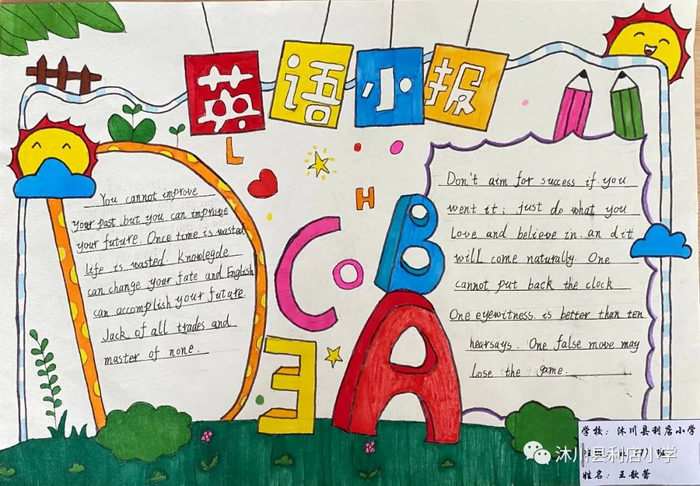 英语小报
L
H
C
O
B
E
A
You cannot improve
your past, but you can improve
your future. Once time is wasted
life is wasted. Knowlegde
can change your fate and English
can accomplish your future
Jack of all trades and
master of none.
Don't aim for success if you
went it; just do what you
Love and believe in. an dit
will come naturally. One
cannot put back the clock
One eyewitness is better than ten
hearsays. One false move may
Lose the game.
学校: 沐川县利店小学
姓名: 王歆蕾
沐川县利店小学